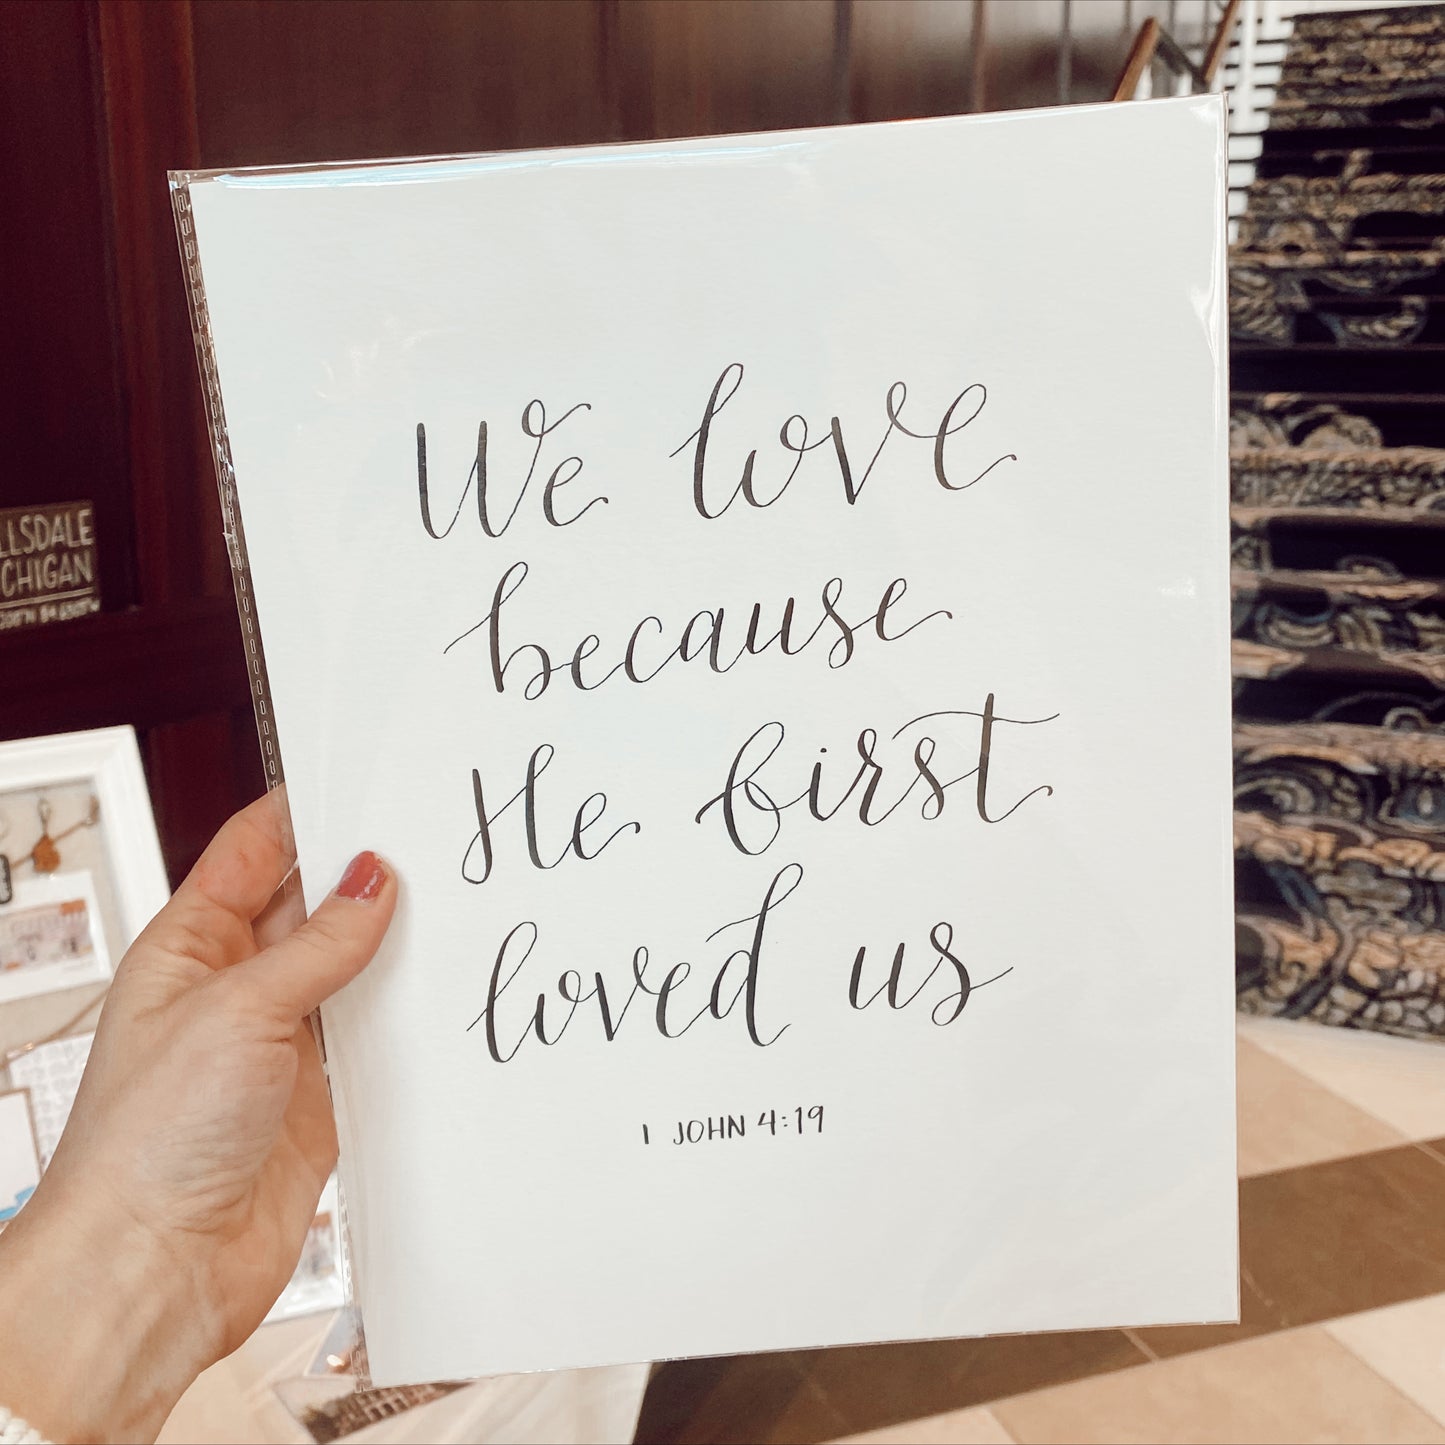 We love
because
He first
loved us
1 JOHN 4:19
LLSDALE
CHIGAN